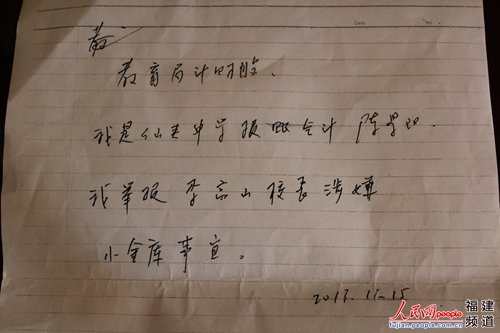 Date No.
教育局计财股.
我是仙王中学报账会计 陈
我举报 李高山校长涉嫌
小金库事宜。
2013.11-15
人民网 people 福建频道
fujian.people.com.cn